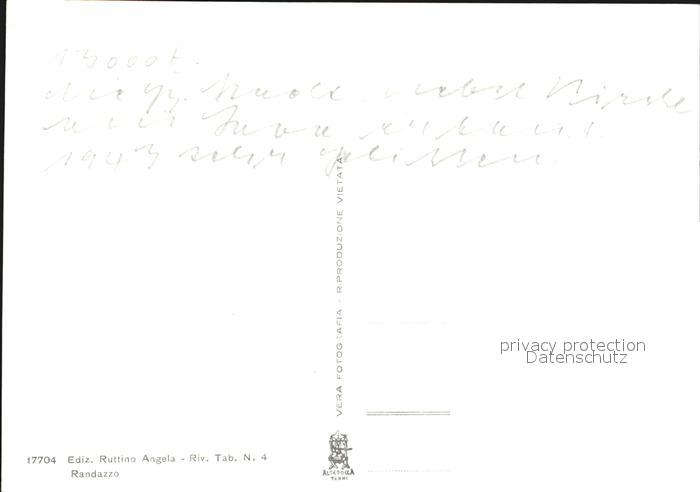 13000 E.
Die gz. Stadt nebst Kirche
aus Lava erbaut.
1943 sehr gelitten.
VERA FOTOGRAFIA - RIPRODUZIONE VIETATA
privacy protection
Datenschutz
17704 Ediz. Ruttino Angela - Riv. Tab. N. 4
Randazzo
ALTEROCCA
TERNI